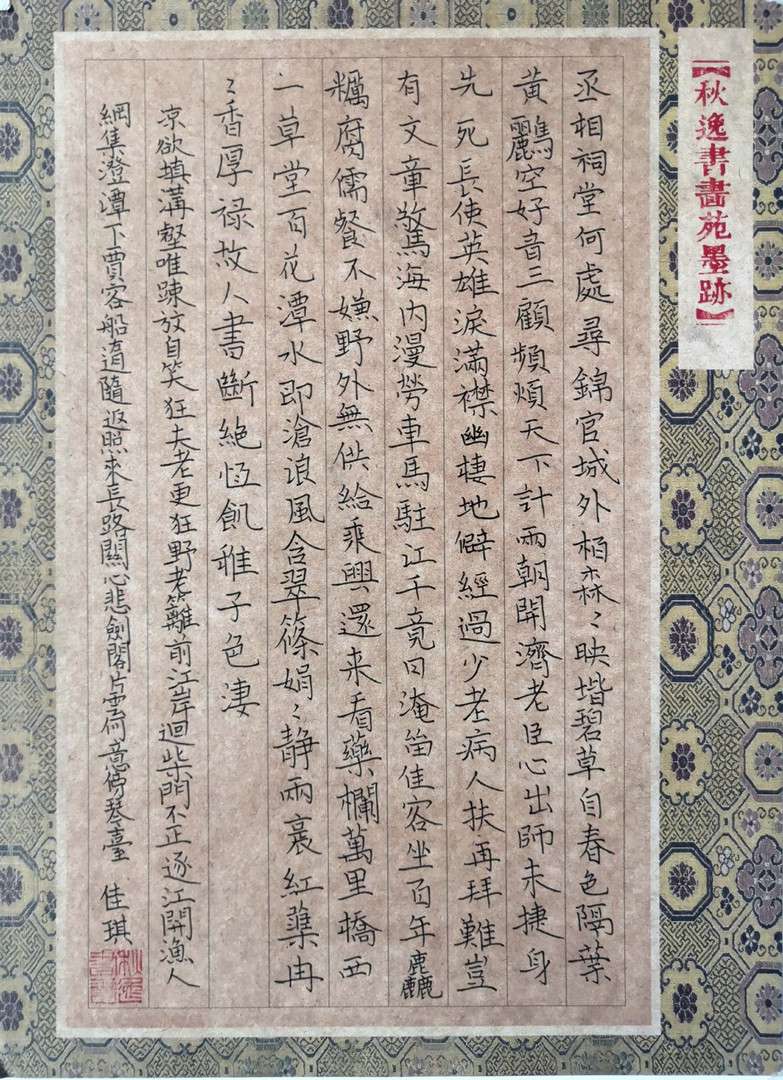 【秋逸書畫苑墨跡】
丞相祠堂何處尋錦官城外柏森〻映堦碧草自春色隔葉
黃鸝空好音三顧頻煩天下計兩朝開濟老臣心出師未捷身
先死長使英雄淚滿襟幽棲地僻經過少老病人扶再拜難豈
有文章驚海內漫勞車馬駐江干竟日淹留佳客坐百年麤
糲腐儒餐不嫌野外無供給乘興還来看藥欄萬里橋西
一草堂百花潭水即滄浪風含翠篠娟〻静雨裛紅蕖冉
〻香厚祿故人書斷絕恆飢稚子色淒
涼欲填溝壑唯踈放自笑狂夫老更狂野老籬前江岸迴柴門不正逐江開漁人
網集澄潭下賈客船随返照来長路關心悲劍閣片雲何意傍琴臺 佳琪